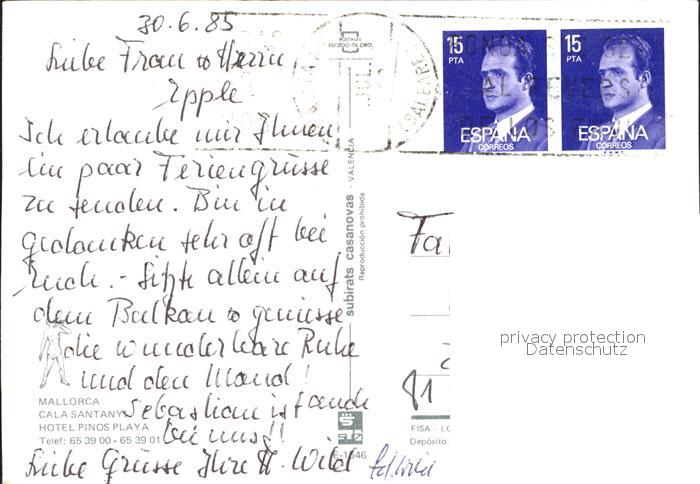 30.6.85
Liebe Frau & Herrn
Epple
Ich erlaube mir Ihnen
ein paar Feriengrüsse
zu senden. Bin in
gedanken sehr oft bei
Euch. - Sitze allein auf
dem Balkon & geniesse
die wunderbare Ruhe
und den Mond!
Sebastian ist auch
bei uns!!
Liebe Grüsse Ihre H. Wild
MALLORCA
CALA SANTANY
HOTEL PINOS PLAYA
Telef: 65 39 00 - 65 39 01
POSTALES
ESCUDO DE ORO
subirats casanovas - VALENCIA
Reproducción prohibida
E-1546
15
PTA
ESPAÑA
CORREOS
15
PTA
ESPAÑA
CORREOS
Fa
81
FISA - 
Depósito
privacy protection
Datenschutz